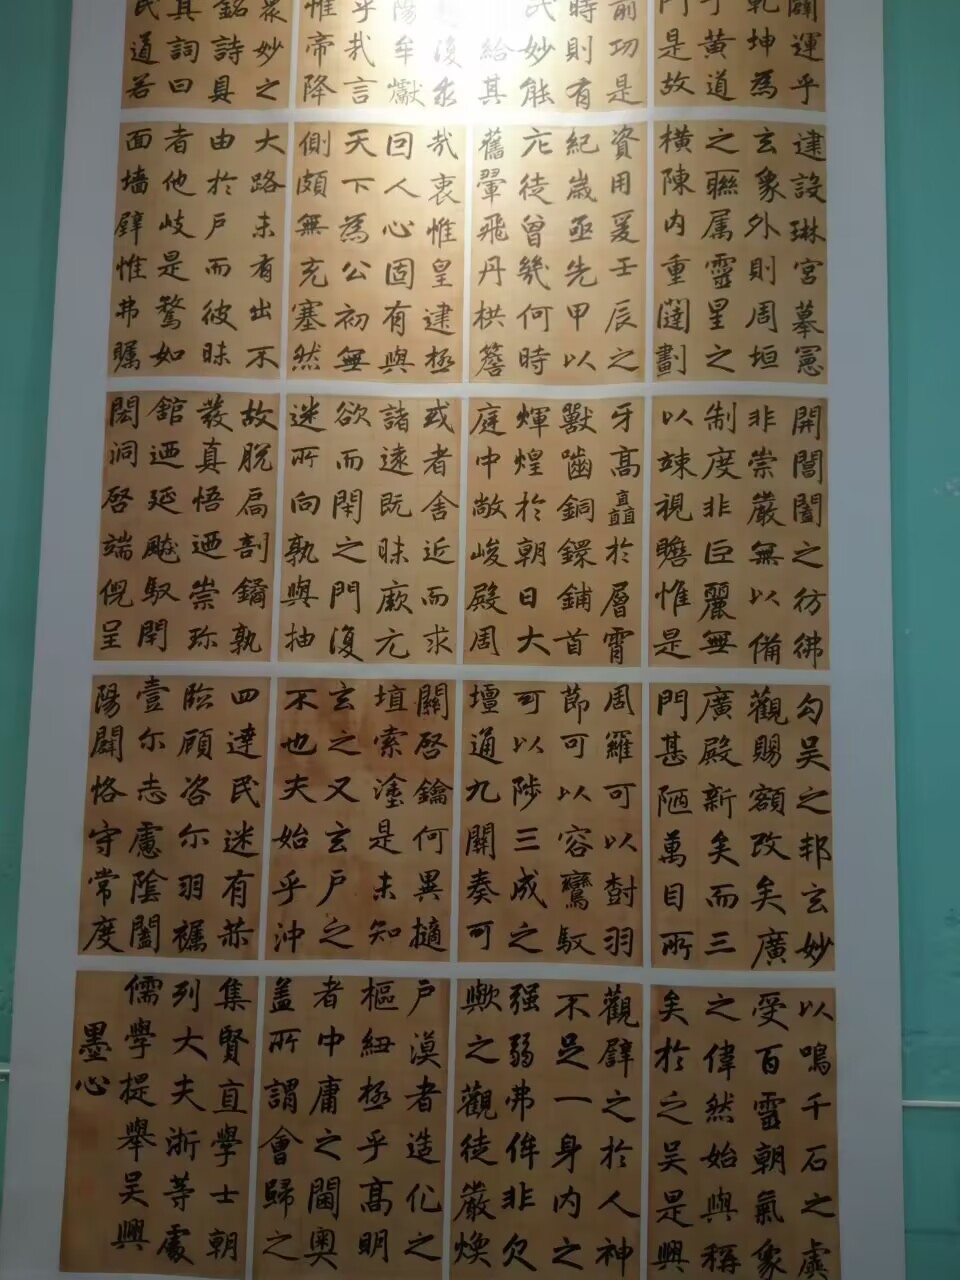 闢運乎
乾坤為
于黃道
門是故
建設琳宮摹憲
玄象外則周垣
之聯属靈星之
橫陳內重闥劃
開閶闔之彷彿
非崇嚴無以備
制度非巨麗無
以竦視瞻惟是
勾吳之邦玄妙
觀賜額改矣廣
廣殿新矣而三
門甚陋萬目所
以鳴千石之虡
受百靈朝氣象
之偉然始與稱
矣於之吳是興
前功是
時則有
民妙能
給其
資用爰壬辰之
紀歲亟先甲以
庀徒曾幾何時
舊翬飛丹栱簷
牙高矗於層霄
獸嚙銅鐶鋪首
輝煌於朝日大
庭中敞峻殿周
周羅可以樹羽
節可以容鸞馭
可以陟三成之
壇通九關奏可
觀辟之於人神
不足一身內之
强弱弗侔非欠
歟之觀徒嚴煥
復永
陽牟巘
乎哉言
惟帝降
哉衷惟皇建極
回人心固有與
天下為公初無
側頗無充塞然
或者舍近而求
諸遠既昧厥元
欲而閉之門復
迷所向孰與抽
關啓鑰何異擿
埴索塗是未知
玄之又玄戶之
不也夫始乎沖
戶漠者造化之
樞紐極乎高明
者中庸之閫奧
蓋所謂會歸之
衆妙之
銘詩具
其詞曰
民道若
大路未有出不
由於戶而彼昧
者他岐是騖如
面墻壁惟弗矚
故脫扃剖鐍孰
發真悟迺崇珎
舘迺延飈馭閉
閎洞啓端倪呈
四達民迷有恭
臨顧咨尔羽褫
壹尔志慮陰闔
陽闢恪守常度
集賢直學士朝
列大夫浙等處
儒學提舉吳興
墨心